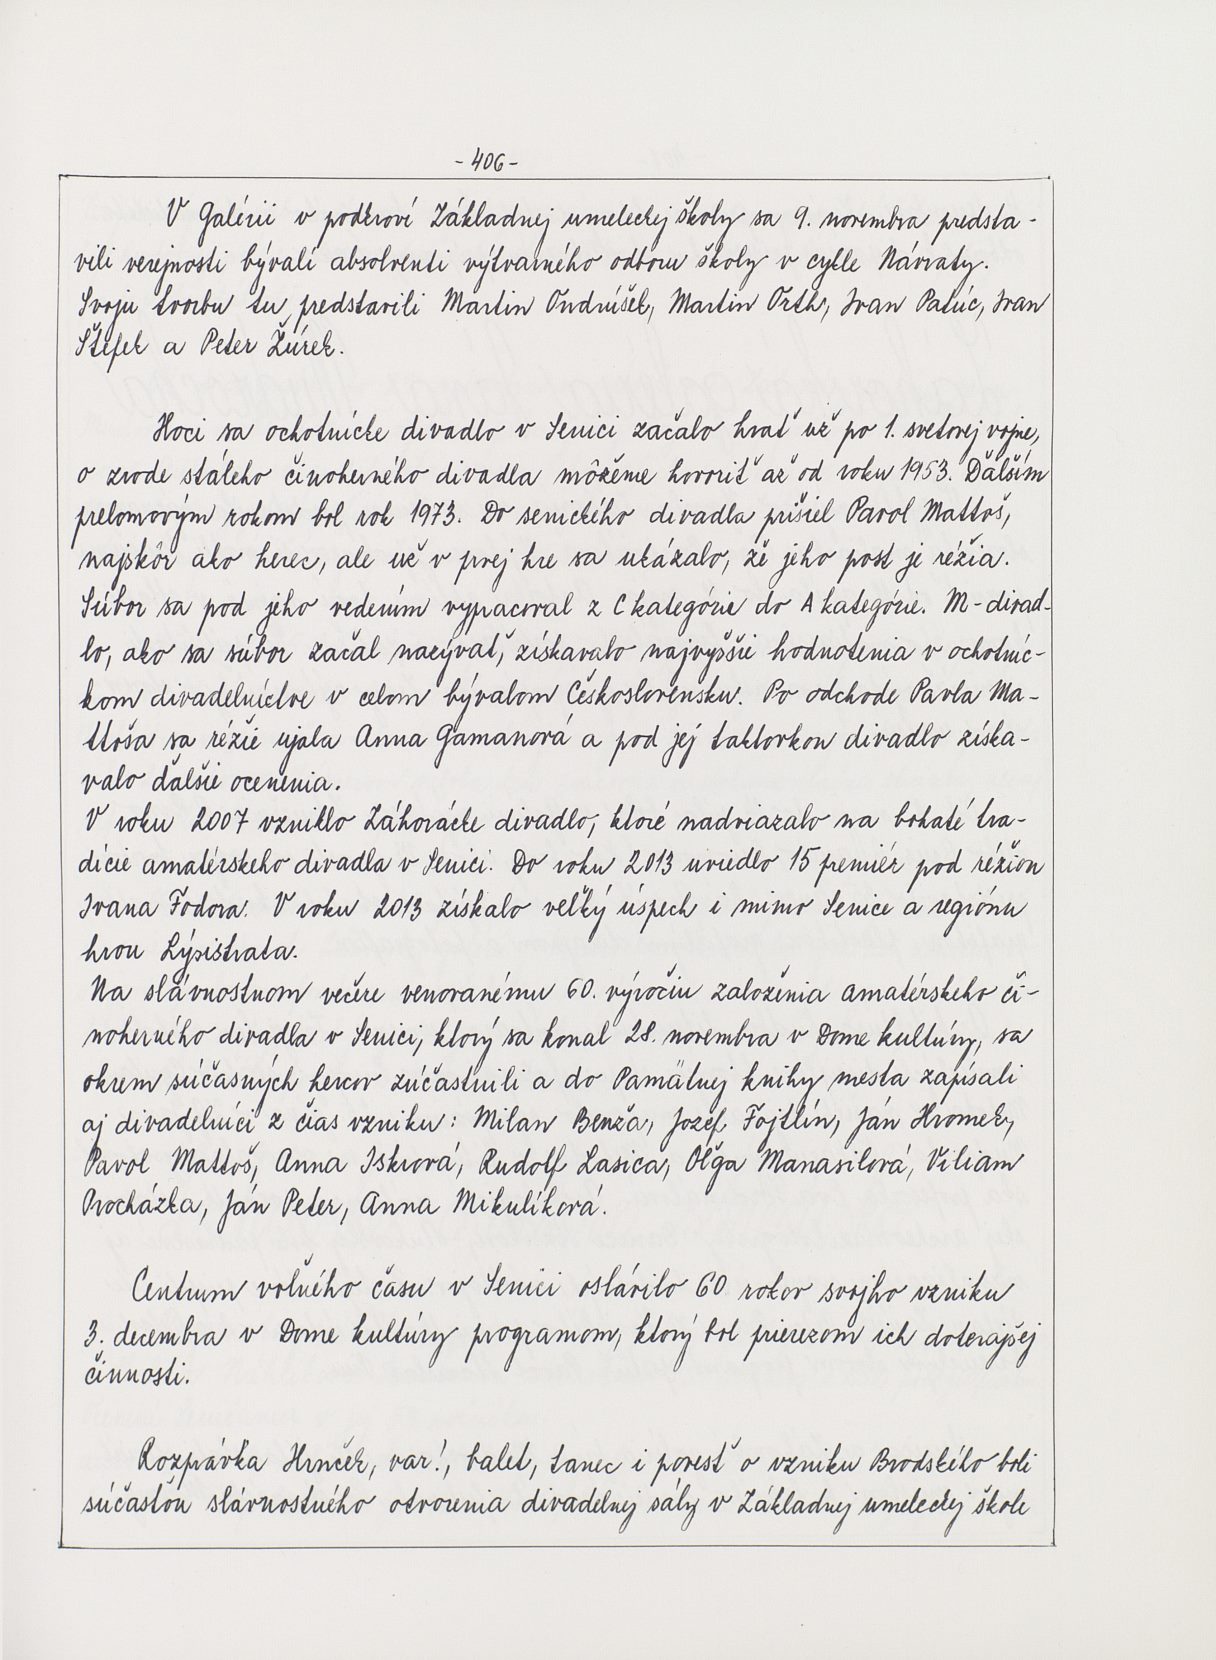 - 406 -
V Galérii v podkroví Základnej umeleckej školy sa 9. novembra predsta-
vili verejnosti bývalí absolventi výtvarného odboru školy v cykle Návraty.
Svoju tvorbu tu predstavili Martin Ondrúšek, Martin Orth, Ivan Patúc, Ivan
Štefek a Peter Žúrek.
Hoci sa ochotnícke divadlo v Senici začalo hrať už po 1. svetovej vojne,
o zrode stáleho činoherného divadla môžeme hovoriť až od roku 1953. Ďalším
prelomovým rokom bol rok 1973. Do senického divadla prišiel Pavol Mattoš,
najskôr ako herec, ale už v prvej hre sa ukázalo, že jeho post je réžia.
Súbor sa pod jeho vedením vypracoval z C kategórie do A kategórie. M-divad-
lo, ako sa súbor začal nazývať, získavalo najvyššie hodnotenia v ochotníc-
kom divadelníctve v celom bývalom Československu. Po odchode Pavla Ma-
ttoša sa réžie ujala Anna Gamanová a pod jej taktovkou divadlo získa-
valo ďalšie ocenenia.
V roku 2007 vzniklo Záhorácke divadlo, ktoré nadviazalo na bohaté tra-
dície amatérskeho divadla v Senici. Do roku 2013 uviedlo 15 premiér pod réžiou
Ivana Fodora. V roku 2013 získalo veľký úspech i mimo Senice a regiónu
hrou Lýsistrata.
Na slávnostnom večere venovanému 60. výročiu založenia amatérskeho či-
noherného divadla v Senici, ktorý sa konal 28. novembra v Dome kultúry, sa
okrem súčasných hercov zúčastnili a do Pamätnej knihy mesta zapísali
aj divadelníci z čias vzniku: Milan Benža, Jozef Fojtlín, Ján Hromek,
Pavol Mattoš, Anna Iskrová, Rudolf Lasica, Oľga Manasilová, Viliam
Procházka, Ján Peter, Anna Mikulíková.
Centrum voľného času v Senici oslávilo 60 rokov svojho vzniku
3. decembra v Dome kultúry programom, ktorý bol prierezom ich doterajšej
činnosti.
Rozprávka Hrnček, var!, balet, tanec i povesť o vzniku Brodského boli
súčasťou slávnostného otvorenia divadelnej sály v Základnej umeleckej škole